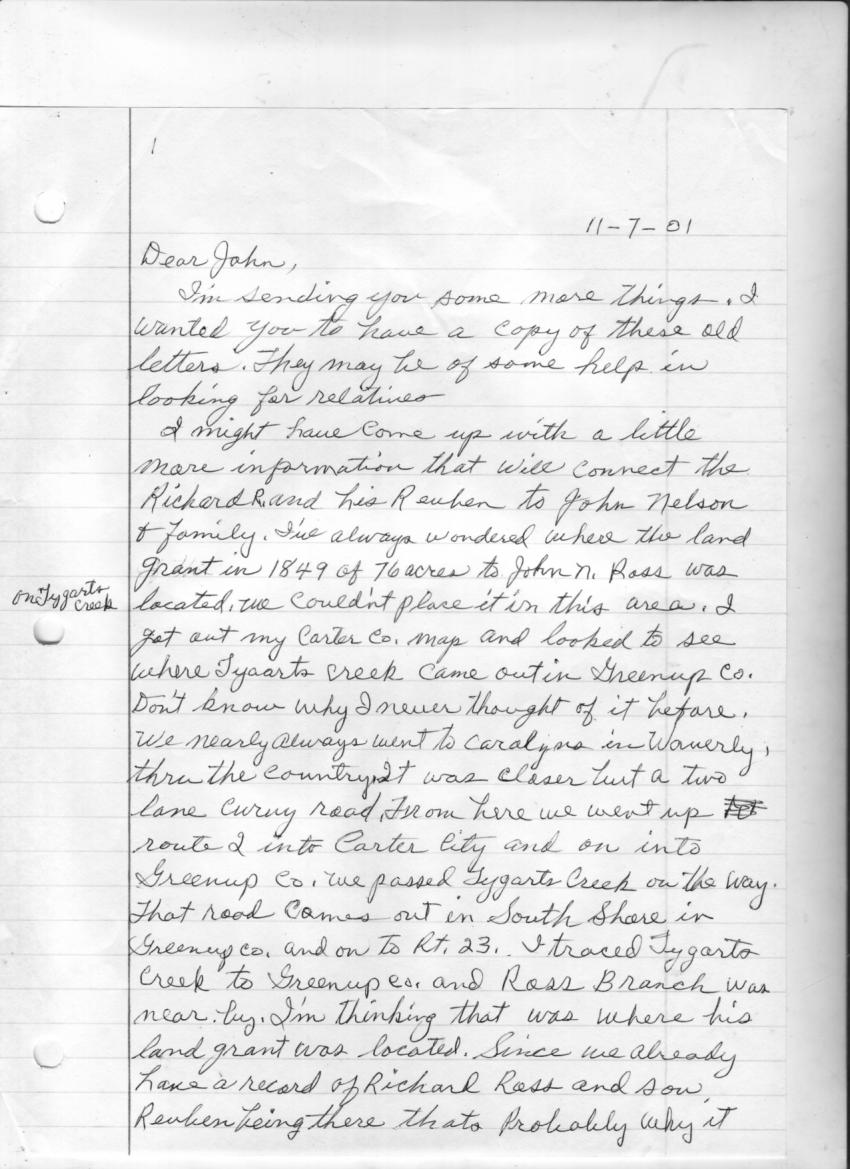 1
11-7-01
Dear John,
I'm sending you some more things. I
wanted you to have a copy of these old
letters. They may be of some help in
looking for relatives
I might have come up with a little
more information that will connect the
Richard R. and his Reuben to John Nelson
& family. I've always wondered where the land
grant in 1849 of 76 acres to John N. Ross was
on Tygarts
Creek
located. we couldn't place it in this area. I
got out my Carter Co. map and looked to see
where Tygarts creek came out in Greenup Co.
Don't know why I never thought of it before.
We nearly always went to Carolyns in Waverly,
thru the country. It was closer but a two
lane curvy road. From here we went up
route 2 into Carter City and on into
Greenup Co. we passed Tygarts Creek on the way.
That road comes out in South Shore in
Greenup co. and on to Rt. 23. I traced Tygarts
Creek to Greenup co. and Ross Branch was
near by. I'm thinking that was where his
land grant was located. Since we already
have a record of Richard Ross and son,
Reuben being there thats probably why it